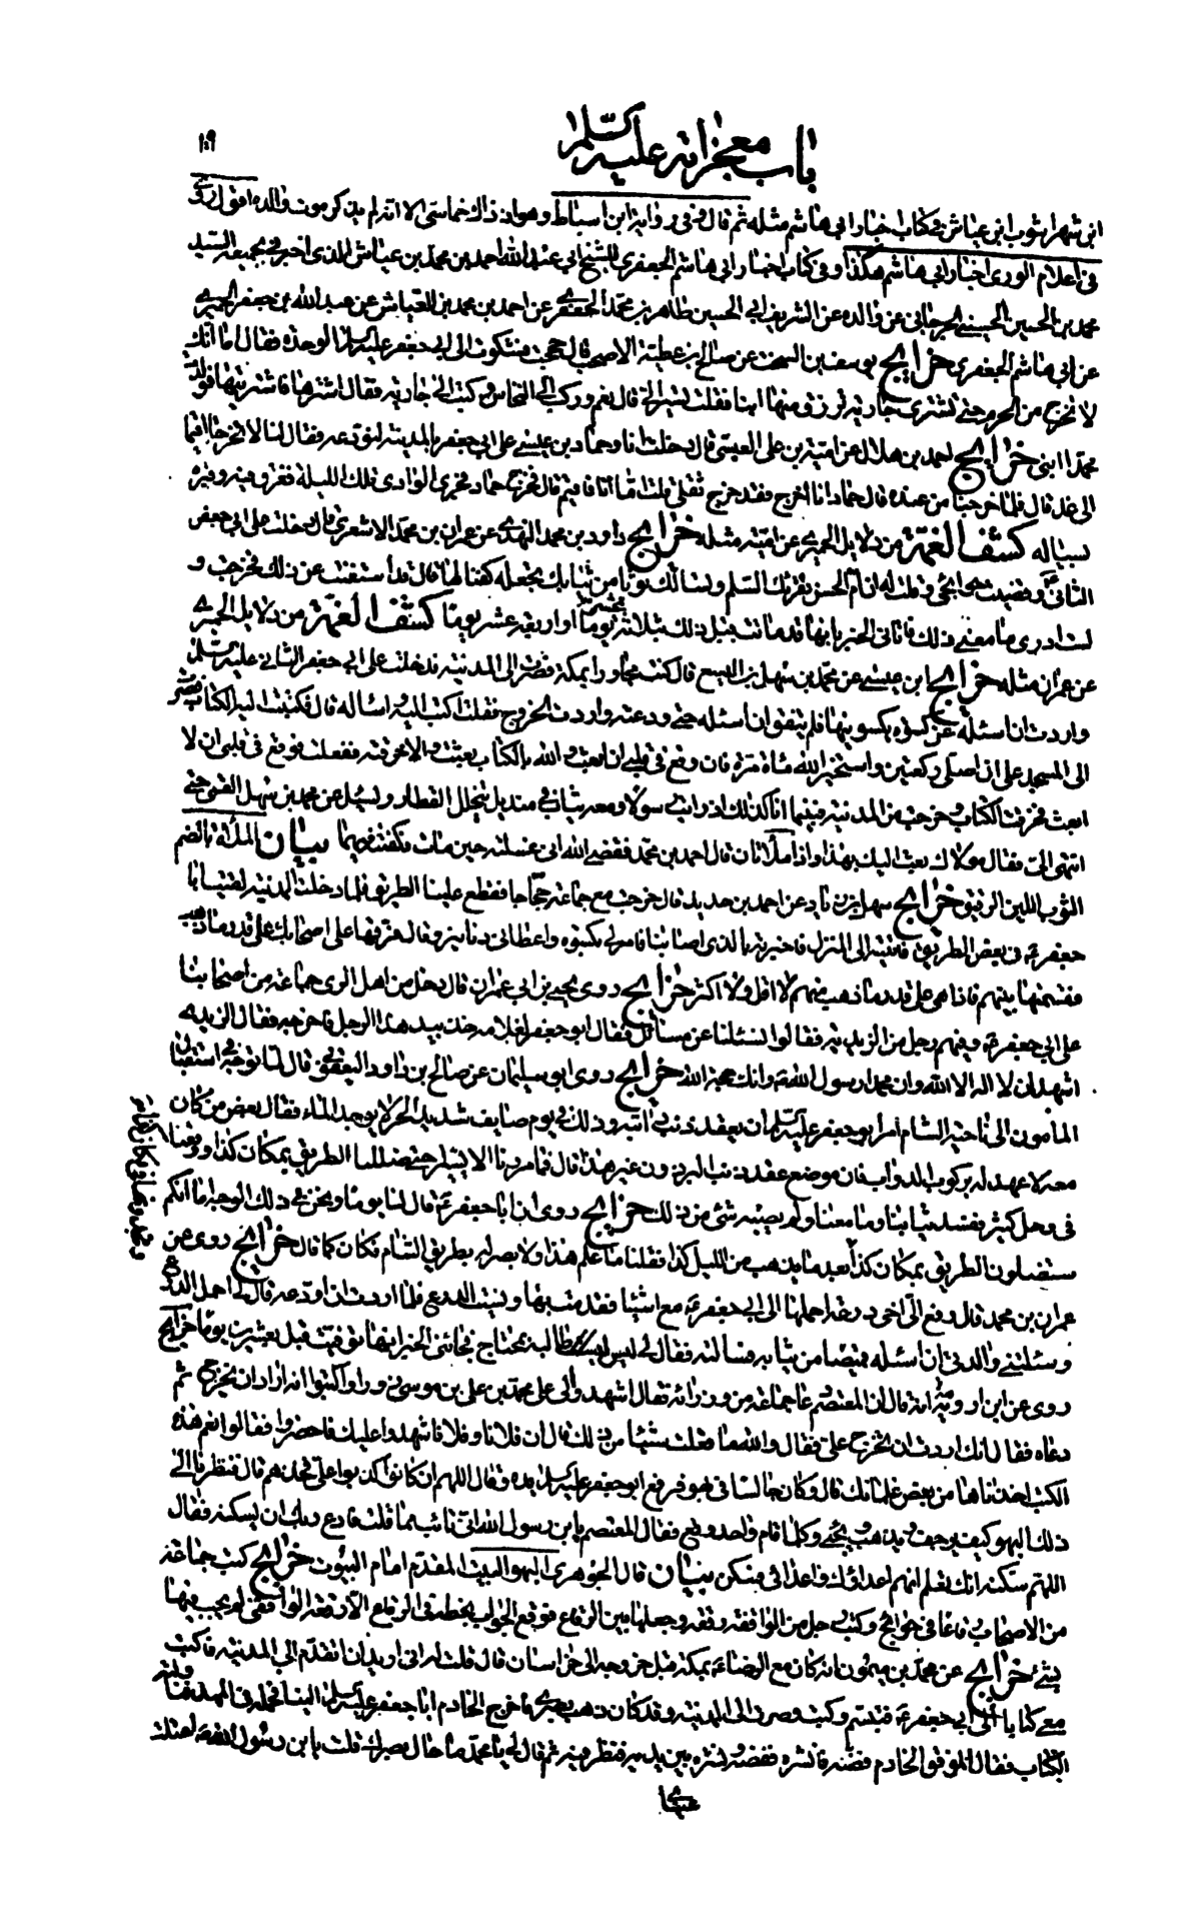 باب معجزاته عليه السلام
١٠٩
ابن شهراشوب ابن عياش في كتاب اخبار ابي هاشم مثله ثم قال وفي رواية ابن اسباط وهو اذ ذاك خماسي الا انه لم يذكر موت والده اقول روى
في اعلام الورى اخبار ابي هاشم هكذا وفي كتاب اخبار ابي هاشم الجعفري للشيخ ابي عبد الله احمد بن محمد بن عياش الذي اخبرني بجميعه السيد
محمد بن الحسين الحسيني الجرجاني عن والده عن الشريف ابي الحسين طاهر بن محمد الجعفري عن احمد بن محمد بن العياش عن عبد الله بن جعفر الحميري
عن ابي هاشم الجعفري خرايج يوسف بن السخت عن صالح بن عطية الاصحب قال حججت فشكوت الى ابي جعفر عليه السلام الوحدة فقال اما انك
لا تخرج من الحرم حتى تشتري جارية ترزق منها ابنا فقلت تشير الي قال نعم وركب الى النخاس وكتب الى جارية فقال اشترها فاشتريتها فولدت
محمدا ابني خرايج احمد بن هلال عن امية بن علي القيسي قال دخلت انا وحماد بن عيسى على ابي جعفر بالمدينة لنودعه فقال لنا لا تخرجا اقيما
الى غد قال فلما خرجنا من عنده قال حماد انا اخرج فقد خرج ثقلي قلت اما انا فاقيم قال فخرج حماد فجرى الوادي تلك الليلة فغرق فيه وقبره
بسيالة كشف الغمة من دلايل الحميري عن امية مثله خرايج داود بن محمد النهدي عن عمران بن محمد الاشعري قال دخلت على ابي جعفر
الثاني ع وقضيت حوائجي وقلت له ان ام الحسن تقرئك السلم وتسالك ثوبا من ثيابك تجعله كفنا لها قال قد استغنت عن ذلك فخرجت و
لست ادري ما معنى ذلك فاتاني الخبر بانها قد ماتت قبل ذلك بثلاثة عشر يوما او اربعة عشر يوما كشف الغمة من دلايل الحميري
عن عمران مثله خرايج ابن عيسى عن محمد بن سهل بن اليسع قال كنت مجاورا بمكة فصرت الى المدينة فدخلت على ابي جعفر الثاني عليه السلام
واردت ان اسئله عن كسوة يكسونيها فلم يتفق ان اسئله حتى ودعته واردت الخروج فقلت اكتب اليه واسئاله قال فكتبت اليه الكتاب فصرت
الى المسجد على ان اصلي ركعتين واستخير الله مائة مرة فان وقع في قلبي ان ابعث والله بالكتاب بعثت والا خرقته ففعلت فوقع في قلبي ان لا
ابعث فخرقت الكتاب وخرجت من المدينة فبينما انا كذلك اذ رايت رسولا ومعه ثياب في منديل يتخلل القطار ويسئل عن محمد بن سهل القمي حتى
انتهى الي فقال مولاك بعث اليك بهذا واذا ملائتان قال احمد بن محمد فقضى الله اني غسلته حين مات وكفنته فيهما بيان الملاءة بالضم
الثوب اللين الرقيق خرايج سهل بن زياد عن احمد بن حديد قال خرجت مع جماعة حجاجا فقطع علينا الطريق فلما دخلت المدينة لقيت ابا
جعفر ع في بعض الطريق فاتيته الى المنزل فاخبرته بالذي اصابنا فامر لي بكسوة واعطاني دنانير وقال فرقها على اصحابك على قدر ما ذهب
فقسمتها بينهم فاذا هي على قدر ما ذهب منهم لا اقل ولا اكثر خرايج روى يحيى بن ابي عمران قال دخل من اهل الري جماعة من اصحابنا
على ابي جعفر ع وفيهم رجل من الزيدية فقالوا نسئلنا عن مسائل فقال ابو جعفر لغلامه خذ بيد هذا الرجل فاخرجه فقال الزيدي
اشهد ان لا اله الا الله وان محمدا رسول الله ص وانك حجة الله خرايج روى ابو سليمان عن صالح بن داود اليعقوبي قال لما توجه في استقبال
المأمون الى ناحية الشام امر ابو جعفر عليه السلام ان يعقد ذنب دابته وذلك في يوم صايف شديد الحر لا يوجد الماء فقال بعض من كان
معه لا عهد له بركوب الدواب فان موضع عقد ذنب البرذون غير هذا قال فما مررنا الا يسيرا حتى ضللنا الطريق بمكان كذا ووقعنا
في وحل كثير ففسد ثيابنا وما معنا ولم يصبه شئ من ذلك خرايج روى ان ابا جعفر ع قال لنا يوما ونحن في ذلك الوجه اما انكم
ستضلون الطريق بمكان كذا بعد ما يذهب من الليل كذا فقلنا ما علم هذا ولا بصر له بطريق الشام فكان كما قال خرايج روى عن
عمران بن محمد قال دفع الي اخي درعة احملها الى ابي جعفر ع مع اشياء فقدمت بها ونسيت الدرع فلما اردت ان اودعه قال لي احمل الدرع
وسئلتني والدتي ان اسئله قميصا من ثيابه فسالته فقال لي ليس بمحتاج اليه فجائني الخبر انها توفيت قبل بعشرين يوما خرايج
روى عن ابن ارومية انه قال ان المعتصم دعا جماعة من وزرائه فقال اشهدوا لي على محمد بن علي بن موسى زورا واكتبوا انه اراد ان يخرج ثم
دعاه فقال انك اردت ان تخرج علي فقال والله ما فعلت شيئا من ذلك قال ان فلانا وفلانا شهدوا عليك فاحضروا فقالوا نعم هذه
الكتب اخذناها من بعض غلمانك قال وكان جالسا في بهو فرفع ابو جعفر عليه السلام يده وقال اللهم ان كانوا كذبوا علي فخذهم قال فنظرنا الى
ذلك البهو كيف يرجف ويذهب ويجئ وكلما قام واحد وقع فقال المعتصم يا بن رسول الله اني تائب مما قلت فادع ربك ان يسكنه فقال
اللهم سكنه انك تعلم انهم اعداؤك واعدائي فسكن بيان قال الجوهري البهو البيت المقدم امام البيوت خرايج كتب جماعة
من الاصحاب رقاعا في حوايج وكتب رجل من الواقفة رقعة وجعلها بين الرقاع فوقع الجواب بخطه في الرقاع الا رقعة الواقفي لم يجب فيها
بشئ خرايج عن محمد بن ميمون انه كان مع الرضا ع بمكة قبل خروجه الى خراسان قال قلت له اني اريد ان اتقدم الى المدينة فاكتب
معي كتابا الى ابي جعفر ع فتبسم وكتب وصرت الى المدينة وقد كان ذهب بصري فاخرج الخادم ابا جعفر عليه السلام الينا فحمله في المهد فناولته
الكتاب فقال لموفق الخادم فضه وانشره ففضه ونشره بين يديه فنظر فيه ثم قال لي يا محمد ما حال بصرك قلت يا بن رسول الله ص اعتلت
عيناي